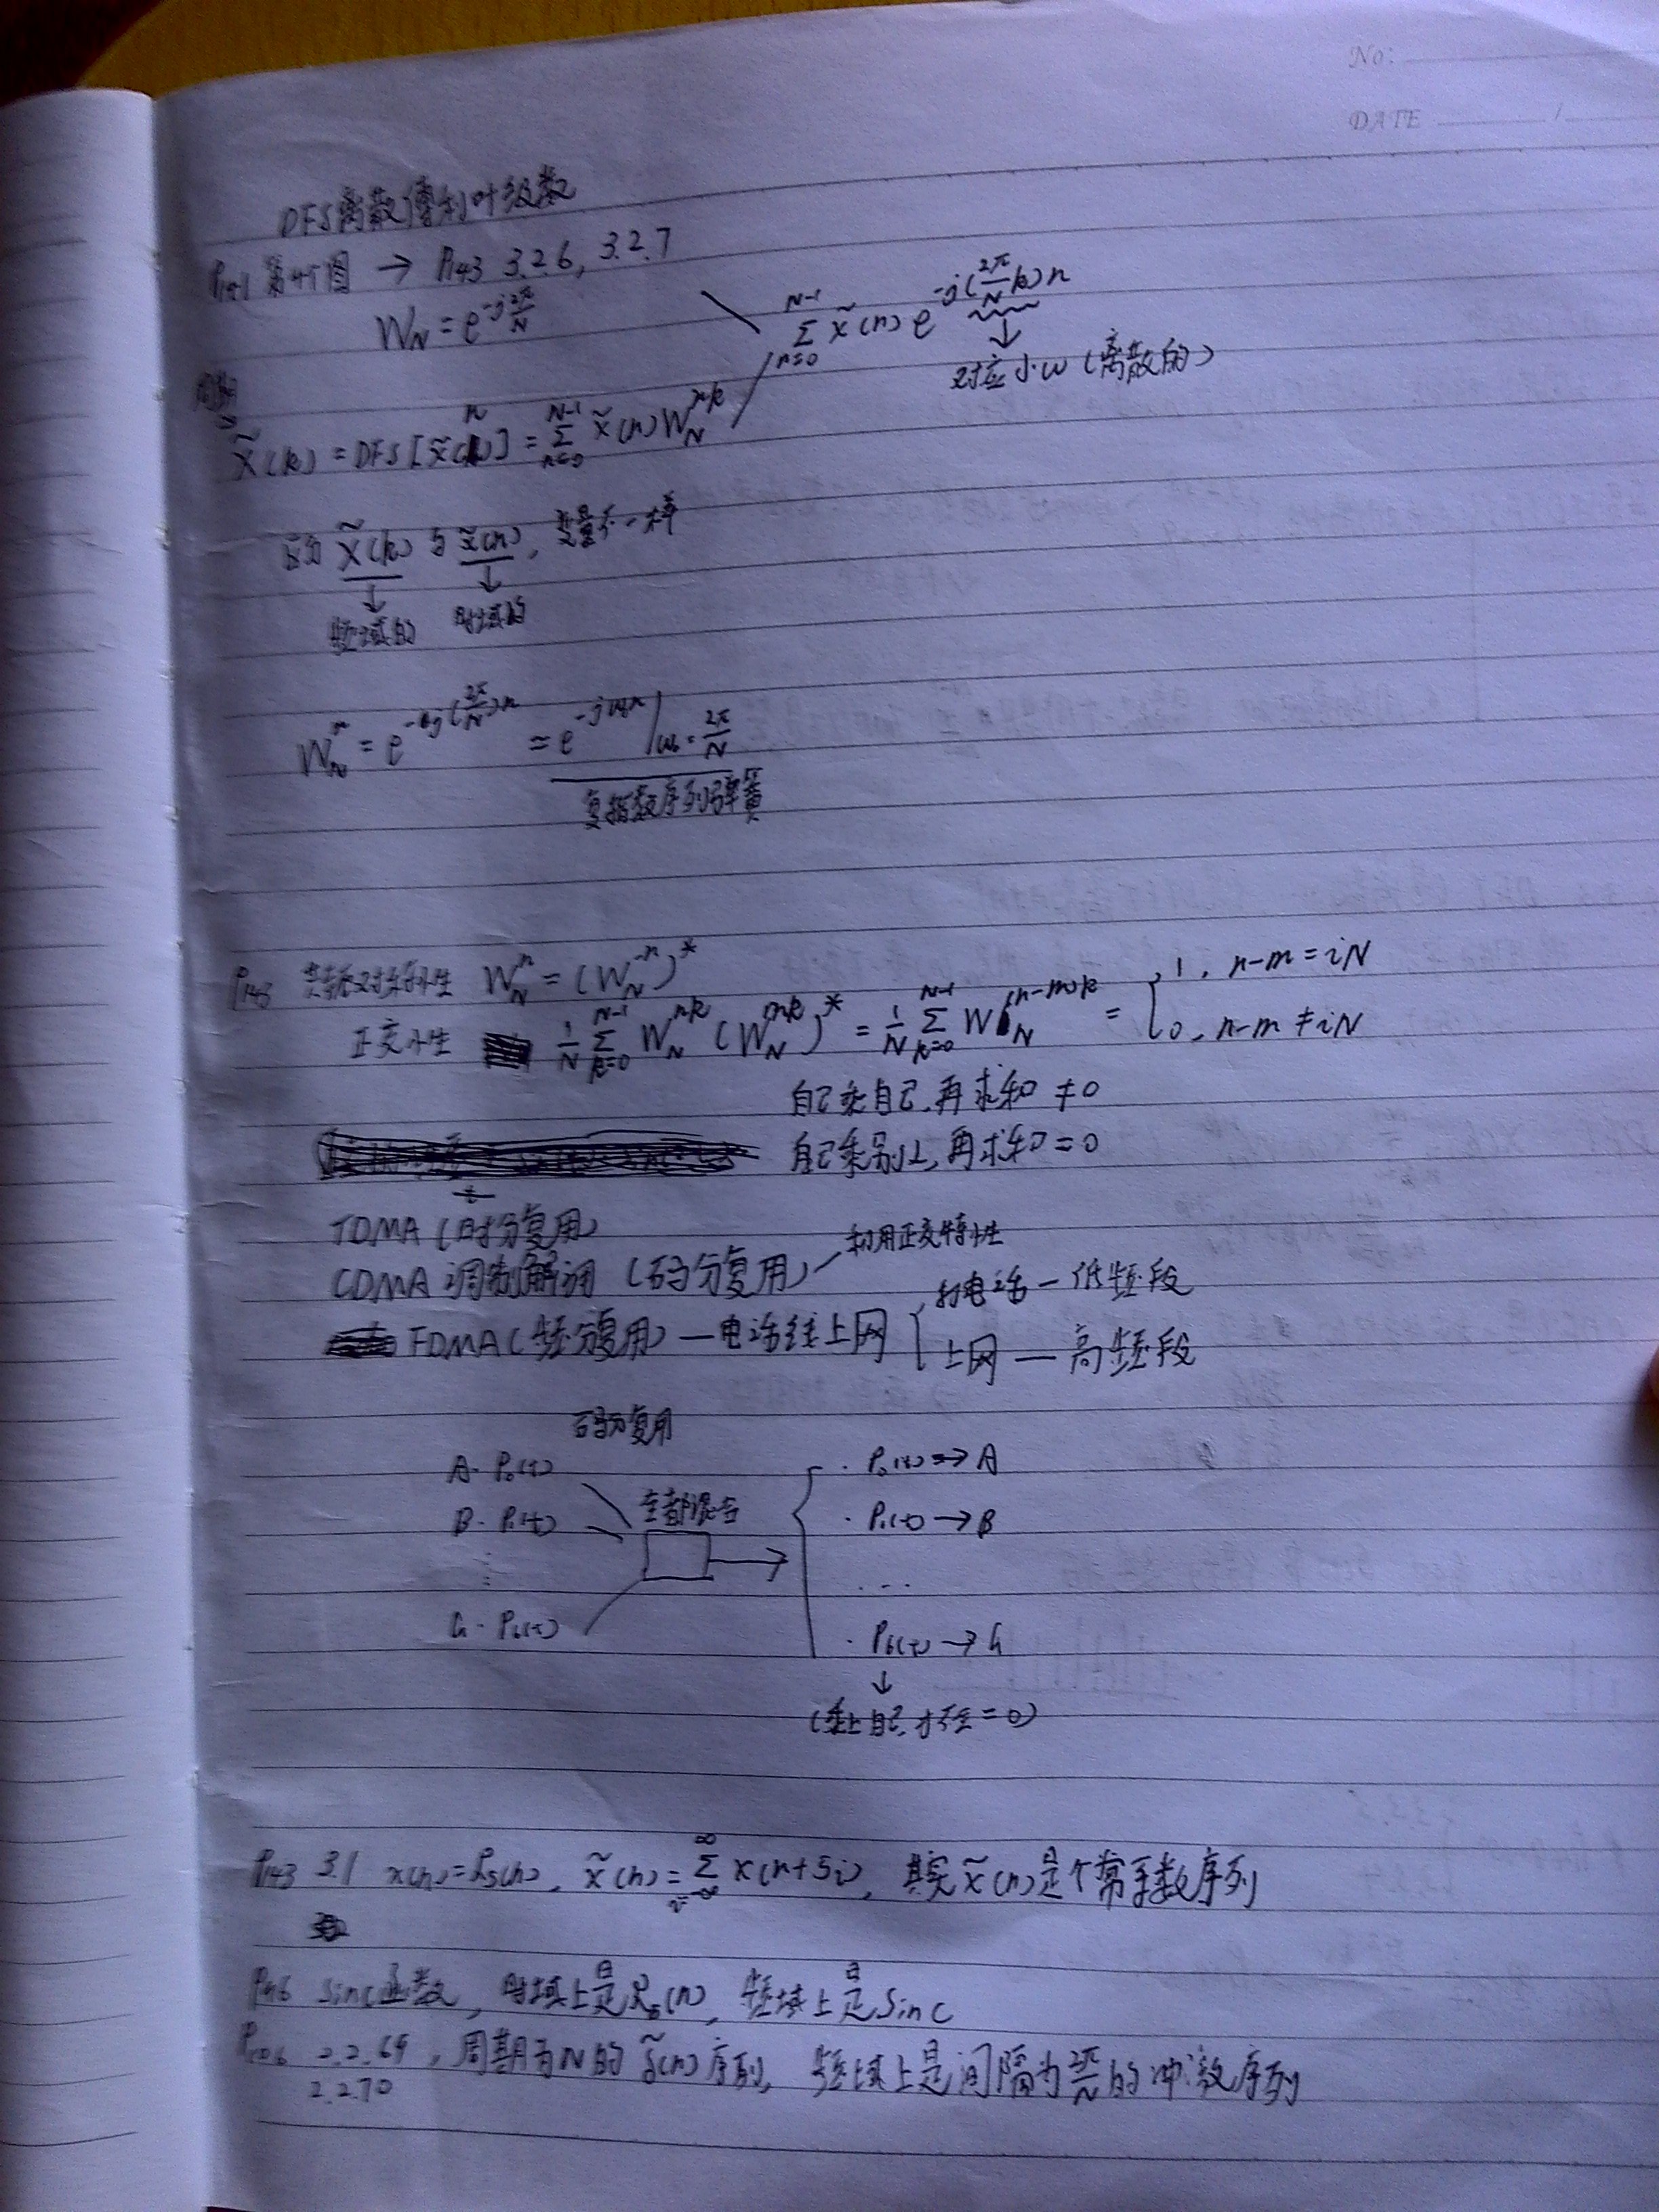 No:
DATE /
DFS离散傅利叶级数
P141 第4个图 → P143 3.2.6, 3.2.7
W_N = e^{-j\frac{2π}{N}}
\sum_{n=0}^{N-1} \tilde{x}(n) e^{-j(\frac{2π}{N}k)n}
↓
对应小w(离散的)
周期
\tilde{X}(k) = DFS[\tilde{x}(n)] = \sum_{n=0}^{N-1} \tilde{x}(n) W_N^{nk}
\tilde{X}(k) 与 \tilde{x}(n), 变量不一样
↓ ↓
频域的 时域的
W_N^n = e^{-j(\frac{2π}{N})n} = e^{-jω_0n}|_{ω_0=\frac{2π}{N}}
复指数序列弹簧
P145 共轭对称性 W_N^n = (W_N^{-n})^*
正交性 \frac{1}{N}\sum_{k=0}^{N-1} W_N^{nk} (W_N^{mk})^* = \frac{1}{N}\sum_{k=0}^{N-1} W_N^{(n-m)k} = { 1, n-m=iN
0, n-m≠iN
自己乘自己,再求和 ≠0
自己乘别人,再求和=0
TDMA(时分复用)
CDMA 调制解调 (码分复用) 利用正交特性
FDMA(频分复用)—电话线上网 { 打电话—低频段
上网—高频段
码分复用
A·P0(t) ·P0(t) → A
B·P1(t) 全部混合 ·P1(t) → B
⋮ ...
G·P6(t) ·P6(t) → G
↓
(乘上自己,才不会=0)
P143 3.1 x(n)=R5(n), \tilde{x}(n)=\sum_{i=-∞}^{∞} x(n+5i), 其实\tilde{x}(n)是个常系数序列
P146 Sinc函数, 时域上是R5(n), 频域上是Sinc
P106 2.2.69, 周期为N的\tilde{δ}(n)序列, 频域上是间隔为\frac{2π}{N}的冲激序列
2.2.70